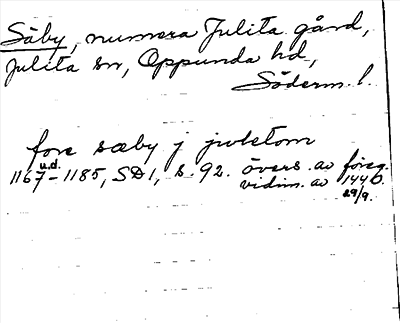 Säby, numera Julita gård,
Julita sn, Oppunda hd,
Söderm. l.
fore sæby j jwletom
u.d.
1167-1185, SD1, s. 92. övers. av föreg.
vidim. av 1446
29/9.